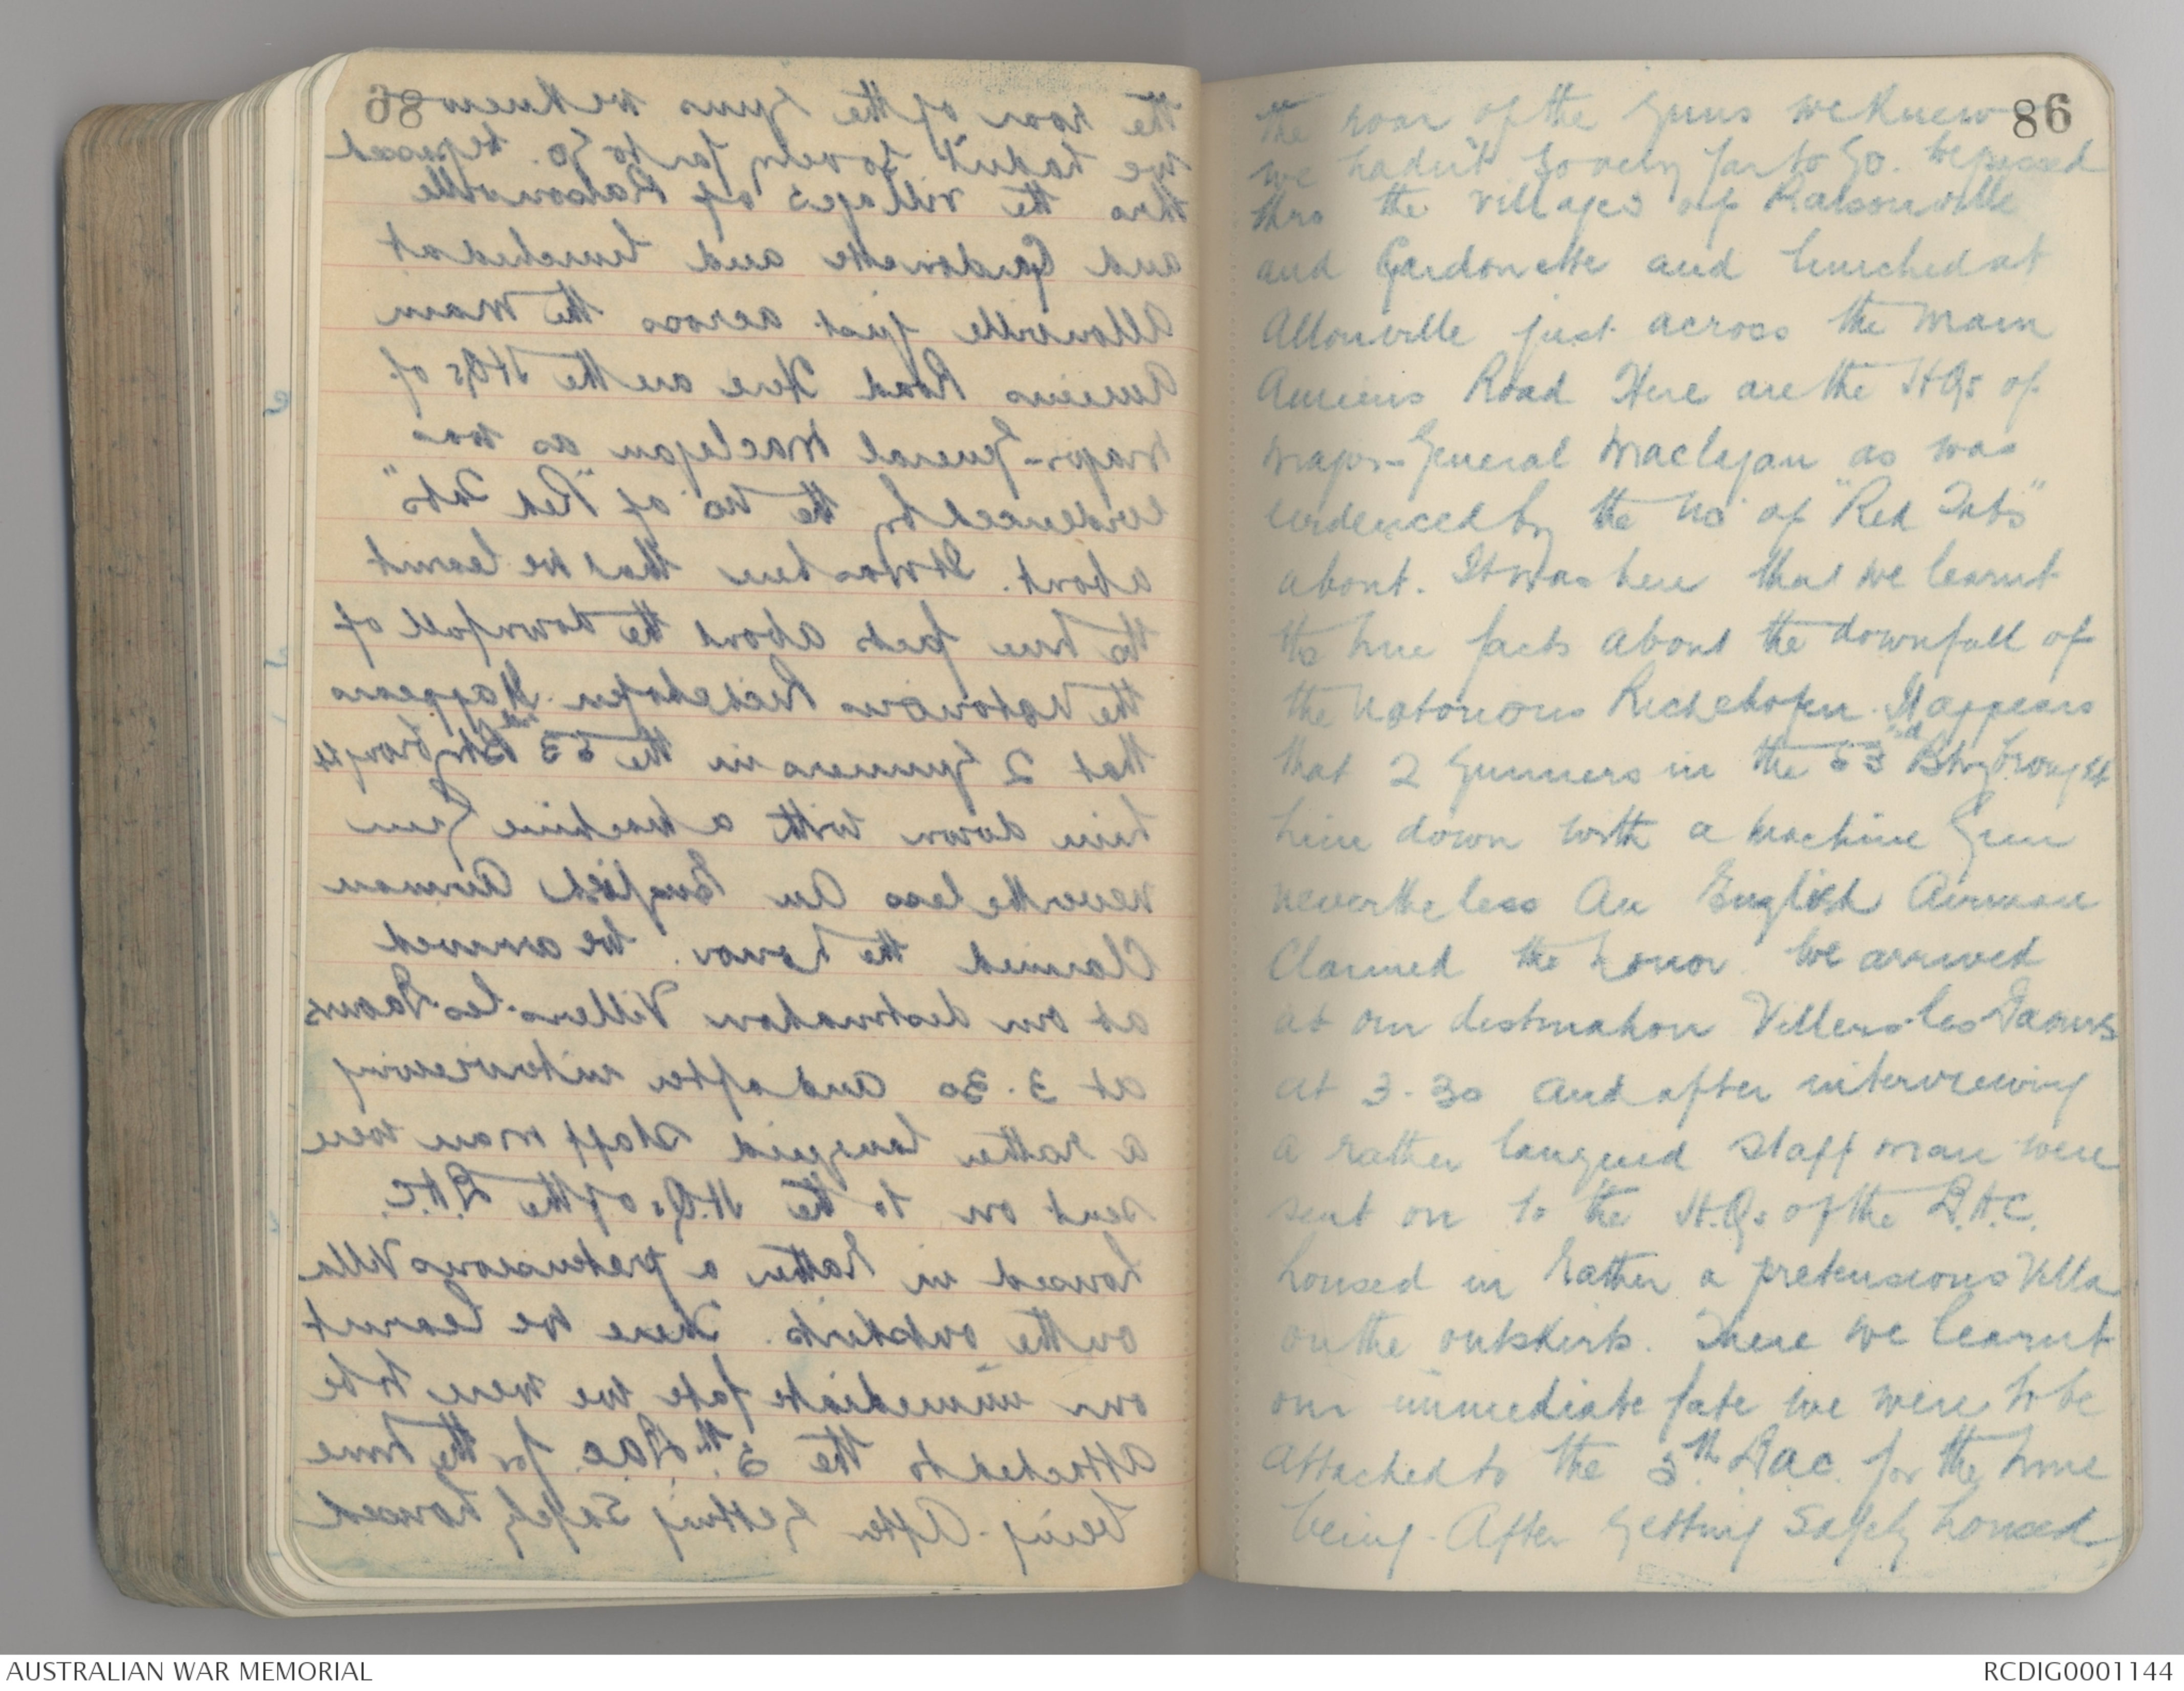 86
the roar of the Guns we knew
we hadn't so very far to go. We passed
thro the villages of Rainneville
and Cardonette and lunched at
Allonville just across the main
Amiens Road Here are the HQs of
Major-General Maclagan as was
evidenced by the No of "Red Tabs"
about. It was here that we learnt
the true facts about the downfall of
the Notorious Richthofen. It appears
that 2 Gunners in the 53rd Bty brought
him down with a machine Gun
nevertheless An English Airman
Claimed the honor. We arrived
at our destination Villers-les-Daours
at 3.30 and after interviewing
a rather languid Staff man were
sent on to the H.Qs of the D.A.C.
housed in rather a pretensious Villa
on the outskirts. There we learnt
our immediate fate we were to be
attached to the 5th. Dac. for the time
being. After getting safely housed
AUSTRALIAN WAR MEMORIAL
RCDIG0001144